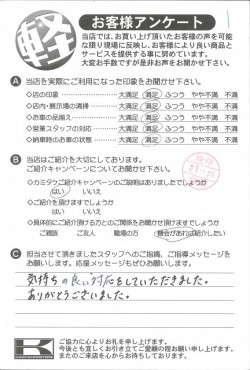 軽
お客様アンケート
当店では、お買い上げ頂いたお客様の声を可能
な限り現場に反映し、お客様により良い商品と
サービスを提供する事に努めています。
大変お手数ですが是非お声をお聞かせ下さい。
A 当店を実際にご利用になった印象をお聞かせ下さい。
◇店の印象 大満足 満足 ふつう やや不満 不満
◇店内・展示場の清掃 大満足 満足 ふつう やや不満 不満
◇お車の品揃え 大満足 満足 ふつう やや不満 不満
◇営業スタッフの対応 大満足 満足 ふつう やや不満 不満
◇納車時のお車の状態 大満足 満足 ふつう やや不満 不満
B 当店はご紹介を大切にしております。
ご紹介キャンペーンについてお聞かせ下さい。
◇カミタケご紹介キャンペーンのご説明はありましたでしょうか
はい いいえ
◇ご紹介を頂けますでしょうか
はい いいえ
◇具体的にご紹介頂ける方とのご関係をお聞かせ頂けますでしょうか
ご親族 ご友人 職場の方 機会があれば紹介したい
C 担当させて頂きましたスタッフへのご指摘、ご指導メッセージを
お願いします。応援メッセージもぜひお願いします。
気持ちの良い対応をしていただきました。
ありがとうございました。
ご協力に心よりお礼を申し上げます。
今後とも宜しくお引き立てご愛顧の程お願い申し上げます。
またのご来店を心からお待ちしております。